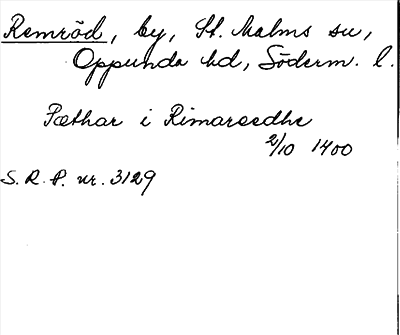 Remröd, by, St. Malms su,
Oppunda hd, Söderm. l.
Pæthar i Rimarødhe
2/10 1400
S. R. P. nr. 3129